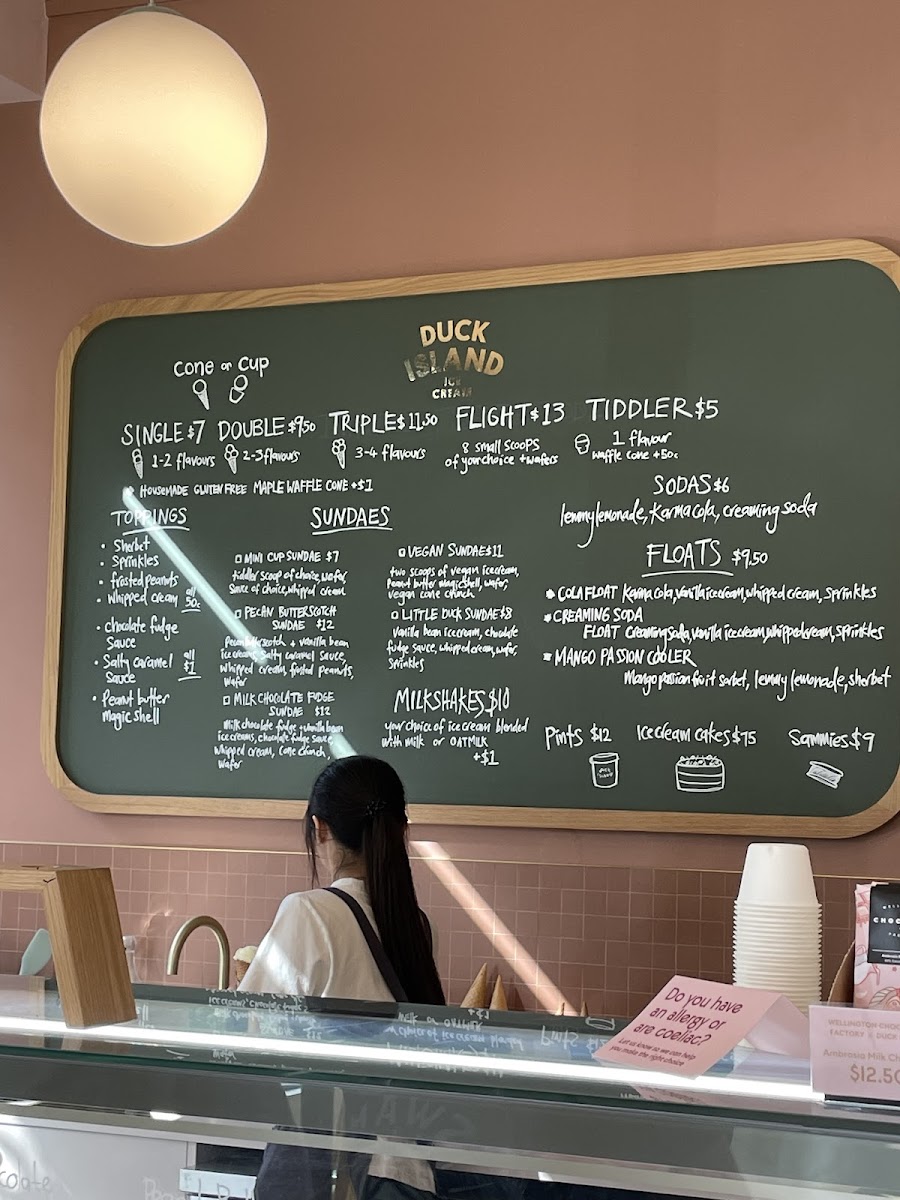 DUCK
ISLAND
ICE
CREAM
Cone or Cup
SINGLE $7 DOUBLE $9.50 TRIPLE $11.50 FLIGHT $13 TIDDLER $5
1-2 flavours 2-3 flavours 3-4 flavours
8 small scoops
of your choice + wafers
1 flavour
waffle cone +50c
HOUSEMADE GLUTEN FREE MAPLE WAFFLE CONE +$1
TOPPINGS
• Sherbet
• Sprinkles
• frosted peanuts
• whipped cream all 50c
• chocolate fudge
Sauce
• Salty caramel
Sauce all $1
• Peanut butter
Magic shell
SUNDAES
MINI CUP SUNDAE $7
tiddler scoop of choice, wafer,
Sauce of choice, whipped cream
PECAN BUTTERSCOTCH
SUNDAE $12
Pecan butterscotch + vanilla bean
ice creams, Salty caramel Sauce,
whipped cream, frosted peanuts,
wafer
MILK CHOCOLATE FUDGE
SUNDAE $12
Milk chocolate fudge + vanilla bean
ice creams, chocolate fudge Sauce,
whipped cream, cone crunch,
wafer
VEGAN SUNDAE $11
two scoops of vegan icecream,
Peanut butter magic shell, wafer,
vegan cone crunch
LITTLE DUCK SUNDAE $8
Vanilla bean icecream, chocolate
fudge sauce, whipped cream, wafer,
Sprinkles
MILKSHAKES $10
your choice of ice cream blended
with milk or OATMILK
+$1
SODAS $6
lemmy lemonade, Karma cola, creaming soda
FLOATS $9.50
COLA FLOAT Karma cola, vanilla icecream, whipped cream, Sprinkles
CREAMING SODA
FLOAT Creaming soda, vanilla icecream, whipped cream, sprinkles
MANGO PASSION COOLER
Mango passionfruit sorbet, lemmy lemonade, sherbet
Pints $12 Icecream cakes $75 Sammies $9
Do you have
an allergy or
are coeliac?
Let us know so we can help
you make the right choice
WELLINGTON CHOC
FACTORY & DUCK
Ambrosia Milk Ch
$12.50